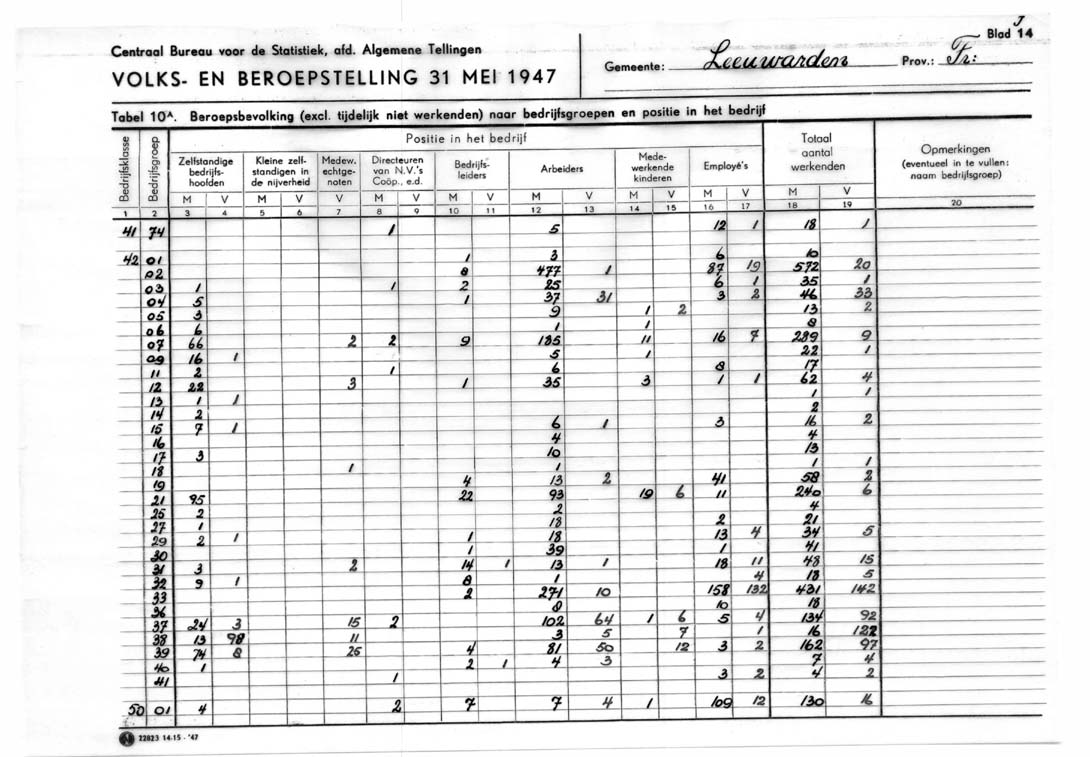 J
Blad 14
Centraal Bureau voor de Statistiek, afd. Algemene Tellingen
VOLKS- EN BEROEPSTELLING 31 MEI 1947
Gemeente: Leeuwarden Prov.: Fr:
Tabel 10A. Beroepsbevolking (excl. tijdelijk niet werkenden) naar bedrijfsgroepen en positie in het bedrijf
Bedrijfsklasse
Bedrijfsgroep
Positie in het bedrijf
Zelfstandige bedrijfs-hoofden
Kleine zelf-standigen in de nijverheid
Medew. echtge-noten
Directeuren van N.V.'s Coöp., e.d.
Bedrijfs-leiders
Arbeiders
Mede-werkende kinderen
Employé's
Totaal aantal werkenden
Opmerkingen (eventueel in te vullen: naam bedrijfsgroep)
M V M V V M V M V M V M V M V M V
1 2 3 4 5 6 7 8 9 10 11 12 13 14 15 16 17 18 19 20
41 74 1 5 12 1 18 1
42 01 1 3 6 10
02 8 477 1 87 19 572 20
03 1 1 2 25 6 1 35 1
04 5 1 37 31 3 2 46 33
05 3 9 1 2 13 2
06 6 1 1 8
07 66 2 2 9 185 11 16 7 289 9
09 16 1 5 1 22 1
11 2 1 6 8 17
12 22 3 1 35 3 1 1 62 4
13 1 1 1 1
14 2 2
15 7 1 6 1 3 16 2
16 4 4
17 3 10 13
18 1 1 1 1
19 4 13 2 41 58 2
21 95 22 93 19 6 11 240 6
25 2 2 4
27 1 18 2 21
29 2 1 1 18 13 4 34 5
30 1 39 1 41
31 3 2 14 1 13 1 18 11 48 15
32 9 1 8 1 4 18 5
33 2 271 10 158 132 431 142
36 8 10 18
37 24 3 15 2 102 64 1 6 5 4 134 92
38 13 98 11 3 5 7 1 16 122
39 74 8 25 4 81 50 12 3 2 162 97
40 1 2 1 4 3 7 4
41 1 3 2 4 2
50 01 4 2 7 7 4 1 109 12 130 16
22823 14-15 - '47